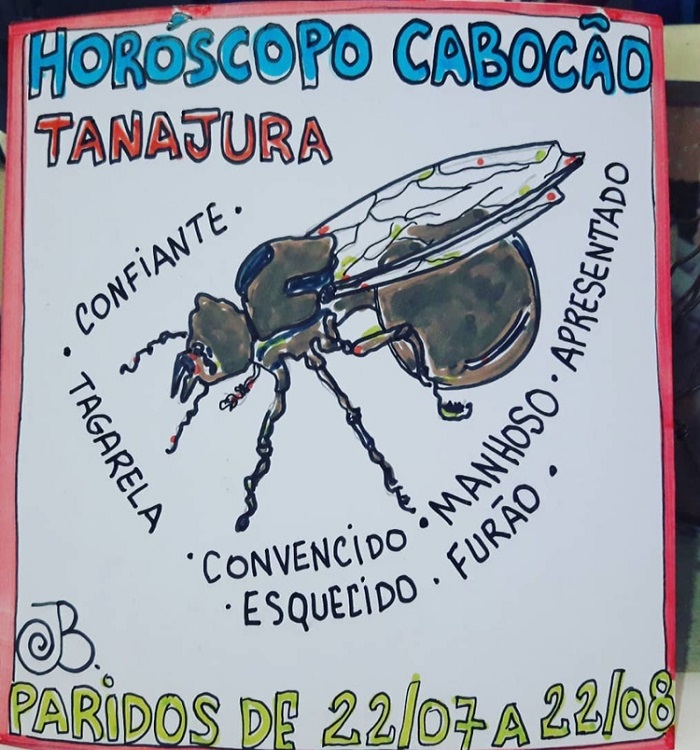 HORÓSCOPO CABOCÃO
TANAJURA
CONFIANTE.
. TAGARELA
. CONVENCIDO
. MANHOSO
. APRESENTADO
. ESQUECIDO
. FURÃO .
JB.
PARIDOS DE 22/07 A 22/08